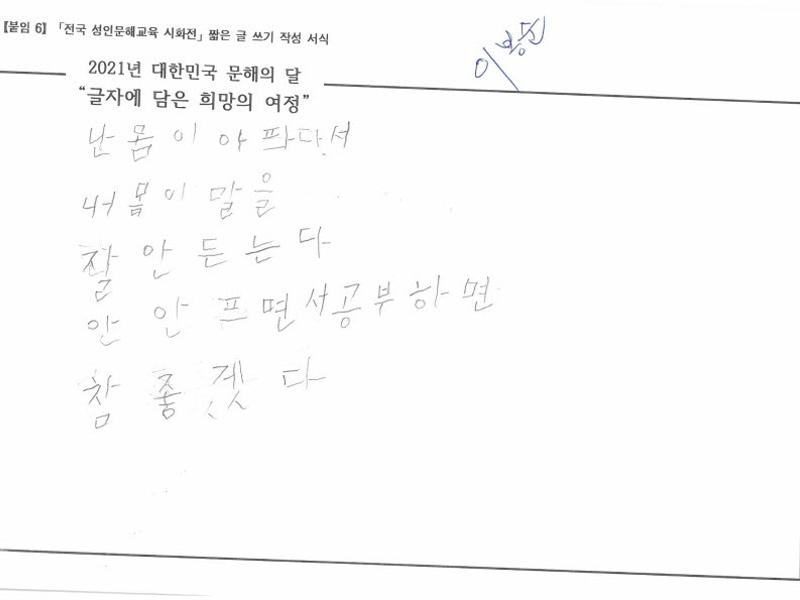 【붙임 6】 「전국 성인문해교육 시화전」 짧은 글 쓰기 작성 서식
2021년 대한민국 문해의 달
“글자에 담은 희망의 여정”
난 몸이 아 파다서
내 몸이 말을
잘 안 든는다
안 안 프면서공부하면
참 좋겠다